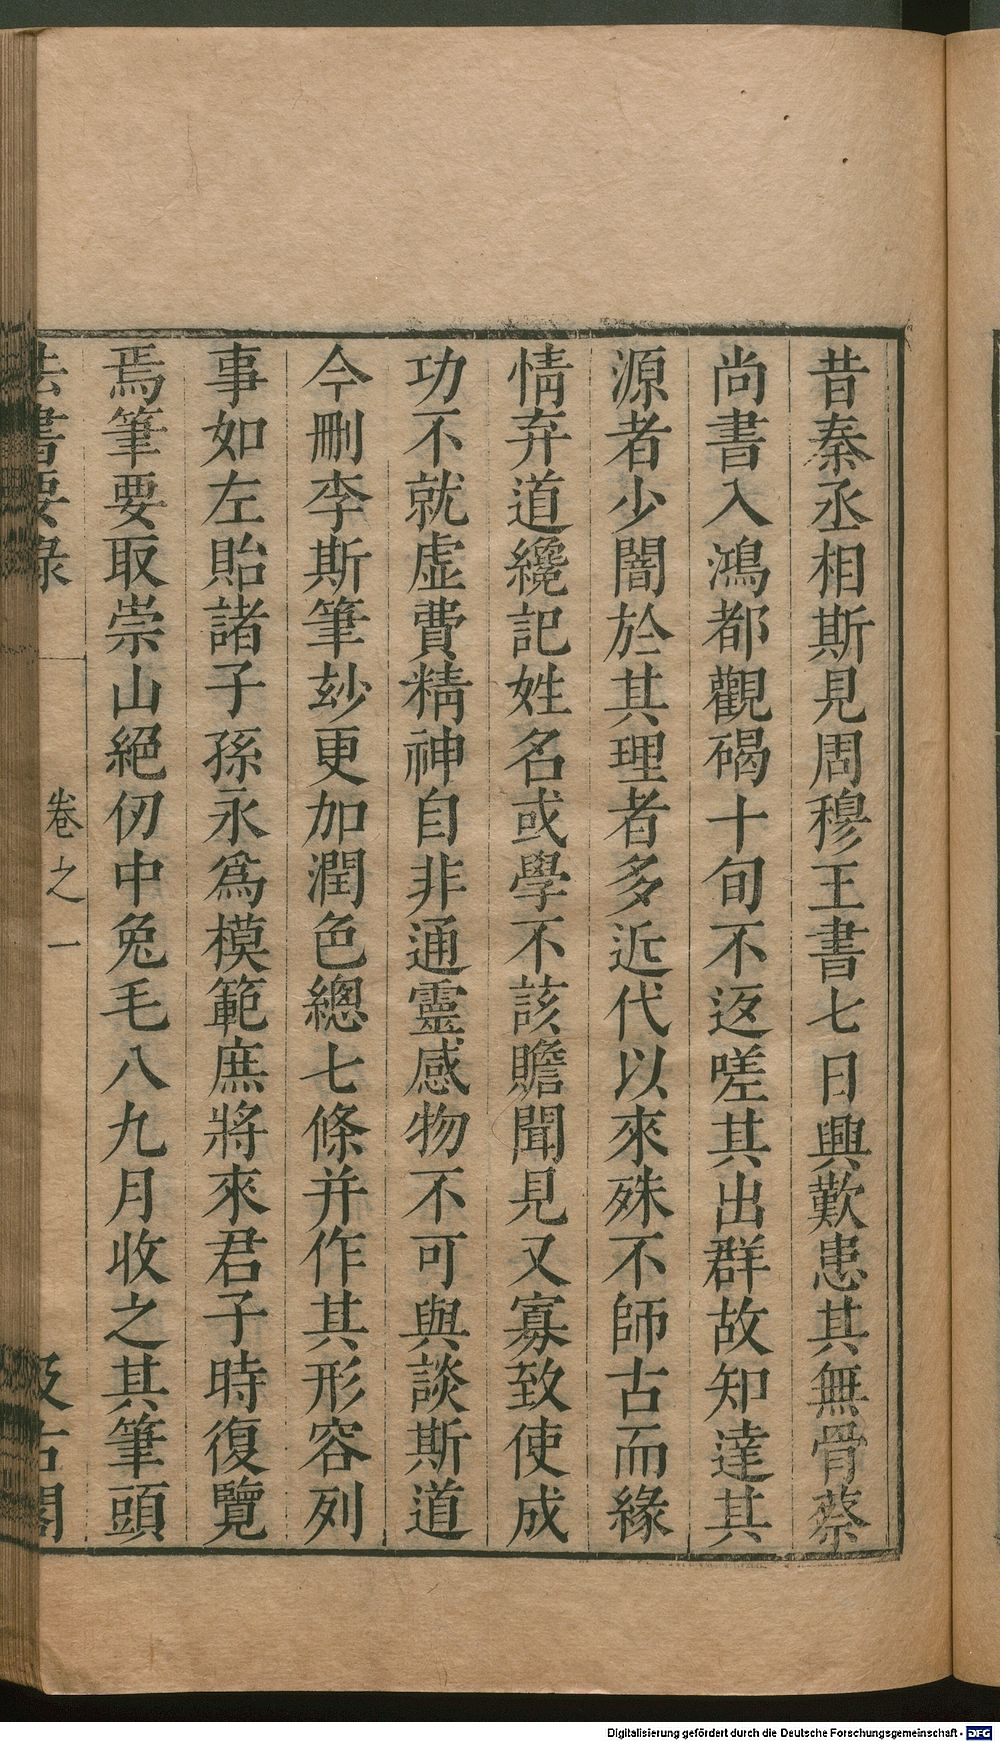 昔秦丞相斯見周穆王書七日興歎患其無骨蔡
尚書入鴻都觀碣十旬不返嗟其出群故知達其
源者少闇於其理者多近代以來殊不師古而緣
情弃道纔記姓名或學不該贍聞見又寡致使成
功不就虛費精神自非通靈感物不可與談斯道
今刪李斯筆玅更加潤色總七條并作其形容列
事如左貽諸子孫永為模範庶將來君子時復覽
焉筆要取崇山絕仞中兔毛八九月收之其筆頭
法書要錄 卷之一 汲古閣
Digitalisierung gefördert durch die Deutsche Forschungsgemeinschaft - DFG